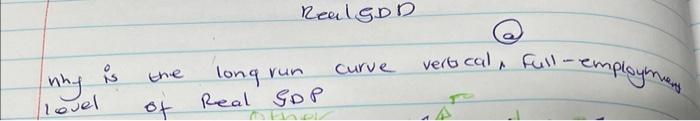 Real GDD
@
why is the long run curve vertical ^ Full-employment
level of Real GDP
Other